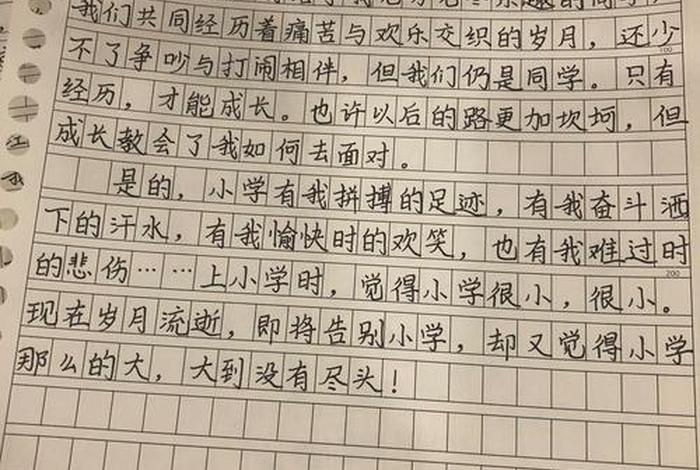 我们共同经历着痛苦与欢乐交织的岁月，还少
100
不了争吵与打闹相伴，但我们仍是同学。只有
经历，才能成长。也许以后的路更加坎坷，但
成长教会了我如何去面对。
是的，小学有我拼搏的足迹，有我奋斗洒
下的汗水，有我愉快时的欢笑，也有我难过时
的悲伤……上小学时，觉得小学很小，很小。
200
现在岁月流逝，即将告别小学，却又觉得小学
那么的大，大到没有尽头！